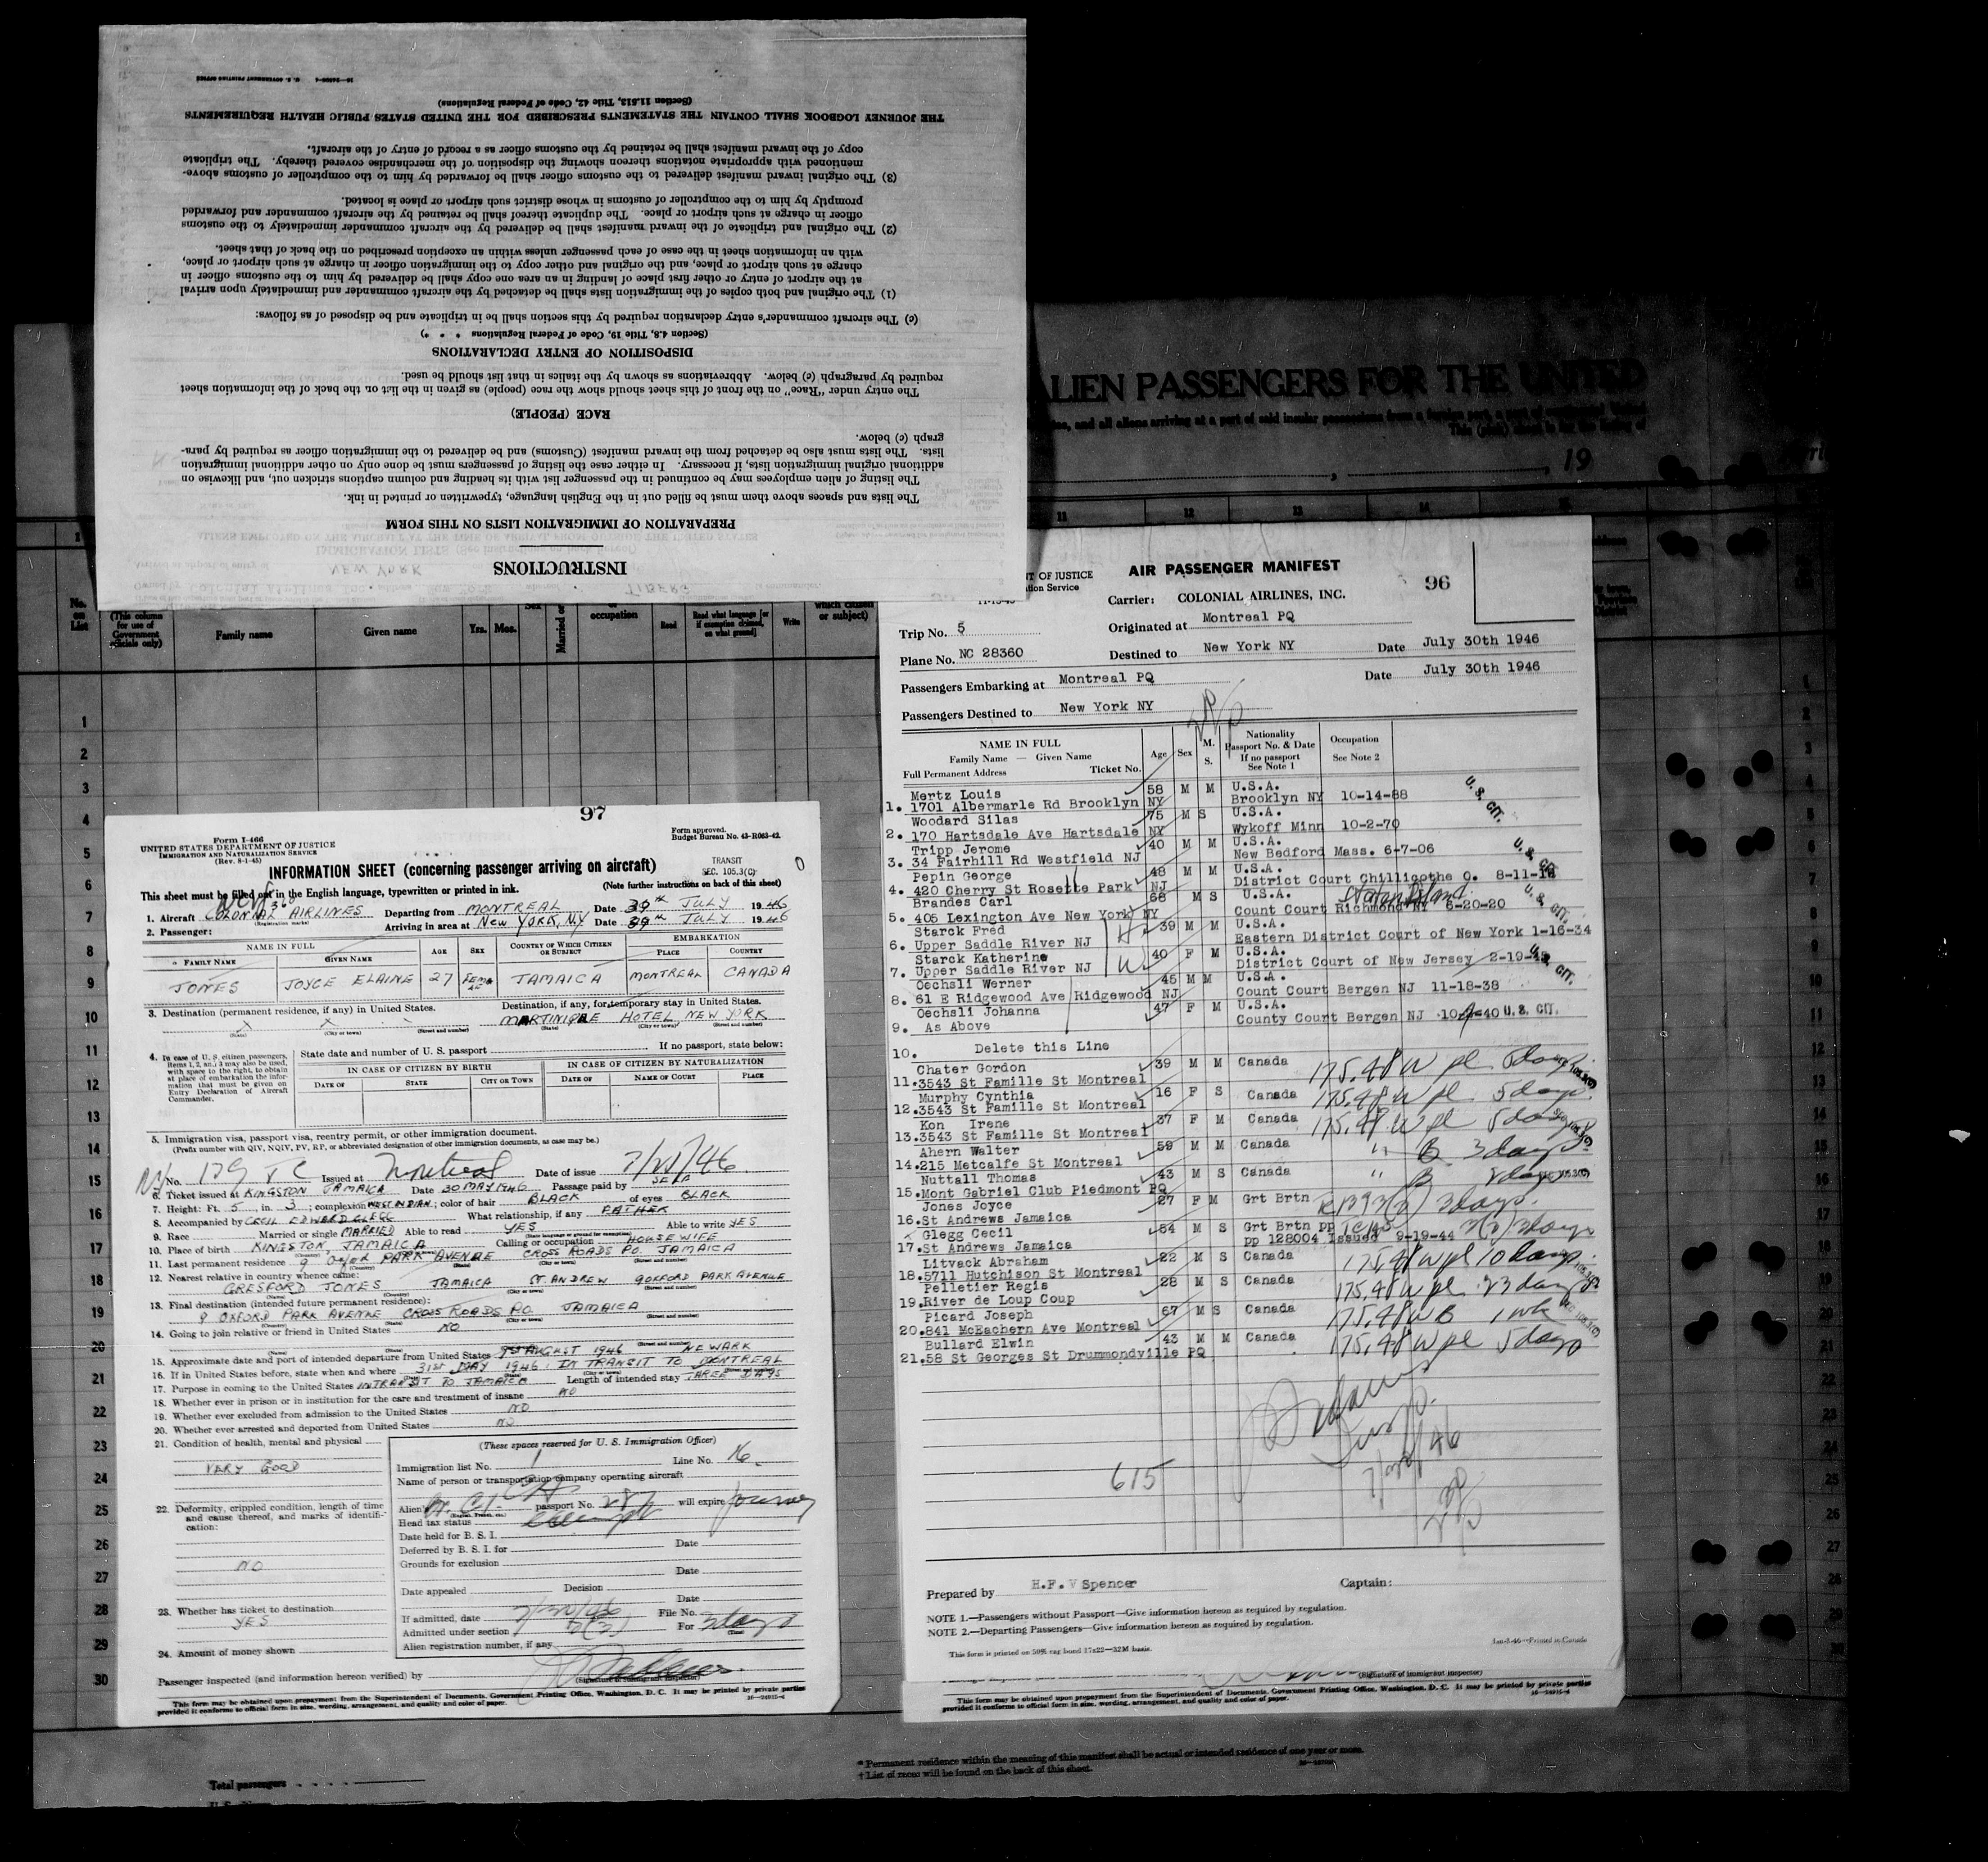 INSTRUCTIONS
PREPARATION OF IMMIGRATION LISTS ON THIS FORM
The lists and spaces above them must be filled out in the English language, typewritten or printed in ink.
The listing of alien employees may be continued in the passenger list with its heading and column captions stricken out, and likewise on
additional original immigration lists, if necessary. In either case the listing of passengers must be done only on other additional immigration
lists. The lists must also be detached from the inward manifest (Customs) and be delivered to the immigration officer as required by para-
graph (c) below.
RACE (PEOPLE)
The entry under "Race" on the front of this sheet should show the race (people) as given in the list on the back of the information sheet
required by paragraph (c) below. Abbreviations as shown by the italics in that list should be used.
DISPOSITION OF ENTRY DECLARATIONS
(Section 4.8, Title 19, Code of Federal Regulations * * *)
(c) The aircraft commander's entry declaration required by this section shall be in triplicate and be disposed of as follows:
(1) The original and both copies of the immigration lists shall be detached by the aircraft commander and immediately upon arrival
at the airport of entry or other first place of landing in an area one copy shall be delivered by him to the customs officer in
charge at such airport or place, and the original and other copy to the immigration officer in charge at such airport or place,
with an information sheet in the case of each passenger unless within an exception prescribed on the back of that sheet.
(2) The original and triplicate of the inward manifest shall be delivered by the aircraft commander immediately to the customs
officer in charge at such airport or place. The duplicate thereof shall be retained by the aircraft commander and forwarded
promptly by him to the comptroller of customs in whose district such airport or place is located.
(3) The original inward manifest delivered to the customs officer shall be forwarded by him to the comptroller of customs above-
mentioned with appropriate notations thereon showing the disposition of the merchandise covered thereby. The triplicate
copy of the inward manifest shall be retained by the customs officer as a record of entry of the aircraft.
THE JOURNEY LOGBOOK SHALL CONTAIN THE STATEMENTS PRESCRIBED FOR THE UNITED STATES PUBLIC HEALTH REQUIREMENTS
(Section 11.513, Title 42, Code of Federal Regulations)
ALIEN PASSENGERS FOR THE UNITED
, 19
No. on List
(This column for use of Government officials only)
Family name
Given name
Yrs. Mos.
occupation
Read
Read what language [or if exemption claimed, on what ground]
Write
97
Form I-466
UNITED STATES DEPARTMENT OF JUSTICE
IMMIGRATION AND NATURALIZATION SERVICE
(Rev. 8-1-45)
Form approved.
Budget Bureau No. 43-R063-42.
INFORMATION SHEET (concerning passenger arriving on aircraft)
TRANSIT
SEC. 105.3(C)
This sheet must be filled out in the English language, typewritten or printed in ink.
(Note further instructions on back of this sheet)
1. Aircraft COLONIAL AIRLINES Departing from MONTREAL Date JULY 1946
(Registration mark)
Arriving in area at NEW YORK, N.Y Date JULY 1946
2. Passenger:
NAME IN FULL AGE SEX COUNTRY OF WHICH CITIZEN OR SUBJECT EMBARKATION
FAMILY NAME GIVEN NAME PLACE COUNTRY
JONES JOYCE ELAINE 27 FEMALE JAMAICA MONTREAL CANADA
3. Destination (permanent residence, if any) in United States.
Destination, if any, for temporary stay in United States.
MARTINIQUE HOTEL NEW YORK
(State) (City or town) (Street and number)
4. In case of U. S. citizen passengers, items 1, 2, an 3 may also be used, with space to the right, to obtain at place of embarkation the information that must be given on Entry Declaration of Aircraft Commander.
State date and number of U. S. passport If no passport, state below:
IN CASE OF CITIZEN BY BIRTH IN CASE OF CITIZEN BY NATURALIZATION
DATE OF STATE CITY OR TOWN DATE OF NAME OF COURT PLACE
5. Immigration visa, passport visa, reentry permit, or other immigration document.
(Prefix number with QIV, NQIV, PV, RP, or abbreviated designation of other immigration documents, as case may be.)
No. 179 TC Issued at Montreal Date of issue
6. Ticket issued at KINGSTON JAMAICA Date 30 MAY 1946 Passage paid by SELF
7. Height: Ft. 5 in. 3; complexion WEST INDIAN; color of hair BLACK of eyes BLACK
8. Accompanied by CECIL EDWARD CLEGG What relationship, if any FATHER
9. Race Married or single MARRIED Able to read YES Able to write YES
10. Place of birth KINGSTON, JAMAICA Calling or occupation HOUSEWIFE
11. Last permanent residence 9 Oxford PARK AVENUE CROSS ROADS P.O. JAMAICA
12. Nearest relative in country whence came:
GRESFORD JONES JAMAICA ST. ANDREW 9 OXFORD PARK AVENUE
13. Final destination (intended future permanent residence):
9 OXFORD PARK AVENUE CROSS ROADS P.O. JAMAICA
14. Going to join relative or friend in United States NO
15. Approximate date and port of intended departure from United States AUGUST 1946 NEWARK
16. If in United States before, state when and where 31st MAY 1946: IN TRANSIT TO MONTREAL
17. Purpose in coming to the United States INTRANSIT TO JAMAICA Length of intended stay THREE DAYS
18. Whether ever in prison or in institution for the care and treatment of insane NO
19. Whether ever excluded from admission to the United States NO
20. Whether ever arrested and deported from United States NO
21. Condition of health, mental and physical
VERY GOOD
22. Deformity, crippled condition, length of time and cause thereof, and marks of identification:
NO
23. Whether has ticket to destination
YES
24. Amount of money shown
(These spaces reserved for U. S. Immigration Officer)
Immigration list No. 1 Line No. 16
Name of person or transportation company operating aircraft
Alien's passport No. will expire
Head tax status
Date held for B. S. I.
Deferred by B. S. I. for Date
Grounds for exclusion
Date
Date appealed Decision
Date
If admitted, date 7/30/46 File No.
Admitted under section 3(3) For 3 days
Alien registration number, if any
Passenger inspected (and information hereon verified) by
(Signature of immigrant inspector)
This form may be obtained upon prepayment from the Superintendent of Documents, Government Printing Office, Washington, D. C. It may be printed by private parties
provided it conforms to official form in size, wording, arrangement, and quality and color of paper.
AIR PASSENGER MANIFEST
96
Carrier: COLONIAL AIRLINES, INC.
Trip No. 5 Originated at Montreal PQ
Plane No. NC 28360 Destined to New York NY Date July 30th 1946
Passengers Embarking at Montreal PQ Date July 30th 1946
Passengers Destined to New York NY
NAME IN FULL
Family Name — Given Name
Full Permanent Address Ticket No.
Age Sex M. S.
Nationality
Passport No. & Date
If no passport
See Note 1
Occupation
See Note 2
Mertz Louis 58 M M U.S.A.
1. 1701 Albermarle Rd Brooklyn NY Brooklyn NY 10-14-88
Woodard Silas 75 M S U.S.A.
2. 170 Hartsdale Ave Hartsdale NY Wykoff Minn 10-2-70
Tripp Jerome 40 M M U.S.A.
3. 34 Fairhill Rd Westfield NJ New Bedford Mass. 6-7-06
Pepin George 48 M M U.S.A.
4. 420 Cherry St Rosette Park NJ District Court Chilligothe O.
Brandes Carl 68 M S U.S.A. Staten Island
5. 405 Lexington Ave New York NY Count Court Richmond NY 6-20-20
Starck Fred 39 M M U.S.A.
6. Upper Saddle River NJ Eastern District Court of New York 1-16-34
Starck Katherine 40 F M U.S.A.
7. Upper Saddle River NJ District Court of New Jersey
Oechsli Werner 45 M M U.S.A.
8. 61 E Ridgewood Ave Ridgewood NJ Count Court Bergen NJ 11-18-38
Oechsli Johanna 47 F M U.S.A.
9. As Above County Court Bergen NJ U.S. CIT.
10. Delete this Line
Chater Gordon 39 M M Canada 175.48 W pl 5 days
11. 3543 St Famille St Montreal
Murphy Cynthia 16 F S Canada 175.48 W pl 5 days
12. 3543 St Famille St Montreal
Kon Irene 37 F M Canada 175.48 W pl 5 days
13. 3543 St Famille St Montreal
Ahern Walter 59 M M Canada " B 3 days
14. 215 Metcalfe St Montreal
Nuttall Thomas 43 M S Canada " B
15. Mont Gabriel Club Piedmont PQ
Jones Joyce 27 F M Grt Brtn 3 days
16. St Andrews Jamaica
Clegg Cecil 64 M S Grt Brtn pp
17. St Andrews Jamaica pp 128004 Issued 9-19-44 3 days
Litvack Abraham 22 M S Canada 175.48 W pl 10 days
18. 5711 Hutchison St Montreal
Pelletier Regis 28 M S Canada 175.48 W pl 23 days
19. River de Loup Coup
Picard Joseph 67 M S Canada 175.48 W B 1 wk
20. 841 McEachern Ave Montreal
Bullard Elwin 43 M M Canada 175.48 W pl 5 days
21. 58 St Georges St Drummondville PQ
615
Prepared by H.F.V Spencer Captain:
NOTE 1.—Passengers without Passport—Give information hereon as required by regulation.
NOTE 2.—Departing Passengers—Give information hereon as required by regulation.
This form is printed on 50% rag bond 17x22—32M basis.
(Signature of immigrant inspector)
This form may be obtained upon prepayment from the Superintendent of Documents, Government Printing Office, Washington, D. C. It may be printed by private parties
provided it conforms to official form in size, wording, arrangement, and quality and color of paper.
* Permanent residence within the meaning of this manifest shall be actual or intended residence of one year or more.
† List of races will be found on the back of this sheet.
Total passengers